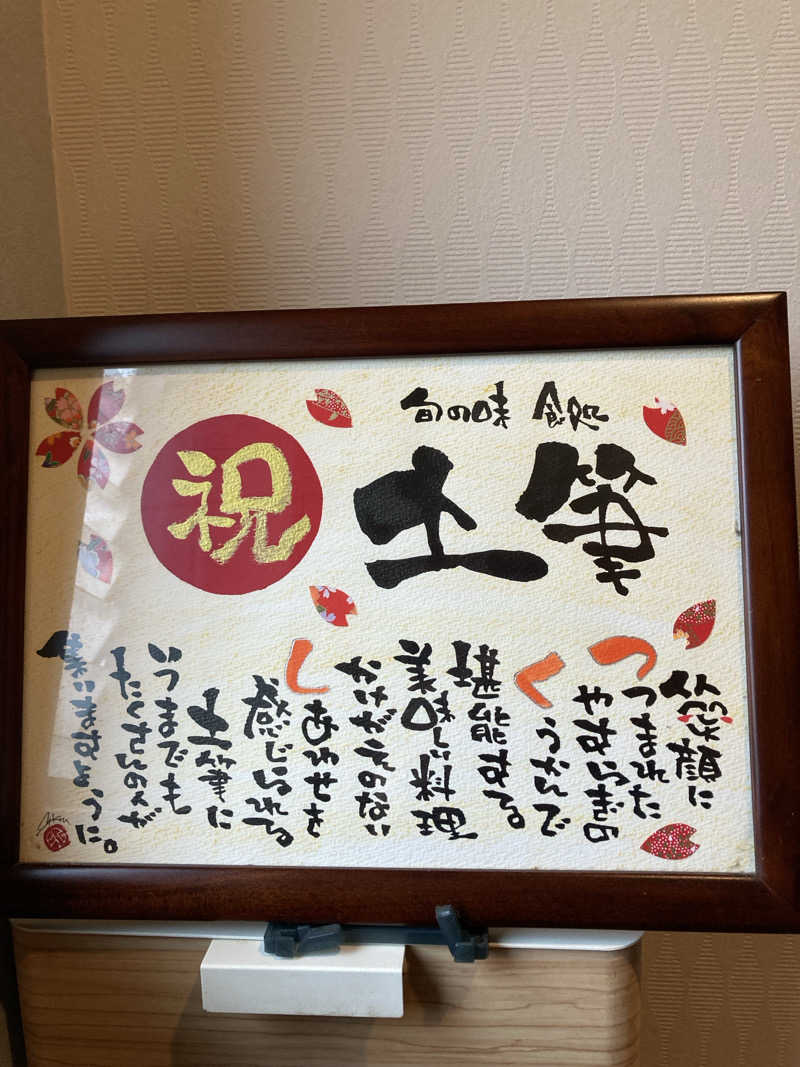 旬の味 食処
土筆
祝
笑顔に
つつまれた
やすらぎの
くうかんで
堪能する。
美味しい料理
かけがえのない
しあわせを
感じられる。
土筆に
いつまでも
たくさんの人が
集いますように。